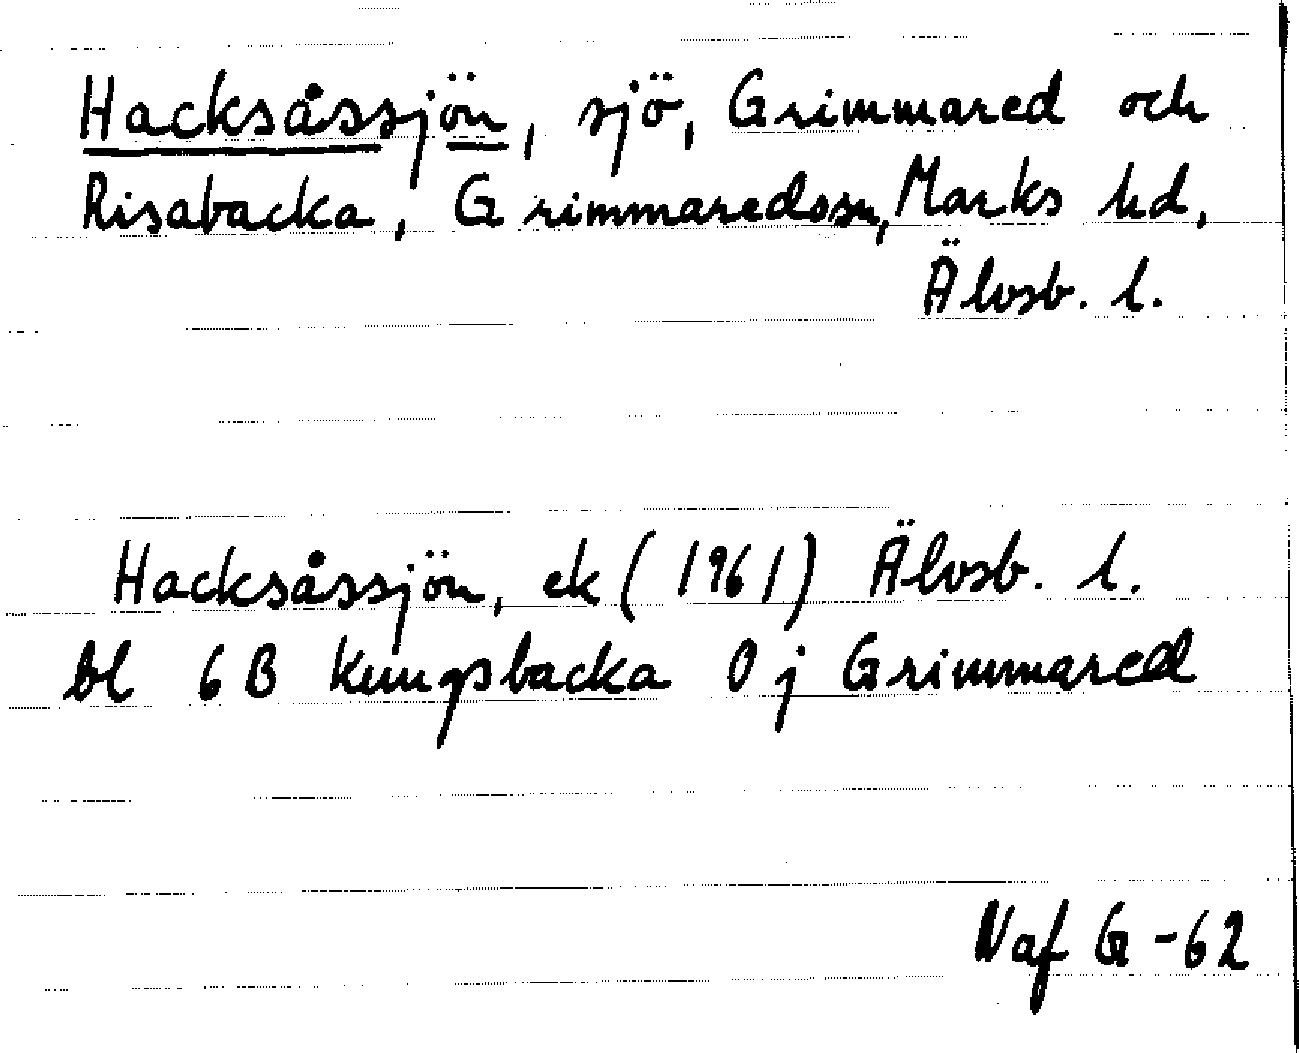 Hacksåssjön, sjö, Grimmared och
Risabacka, Grimmaredssn, Marks hd,
Älvsb. l.
Hacksåssjön, ek (1961) Älvsb. l.
bl 6 B Kungsbacka 0 j Grimmared
Naf G -62